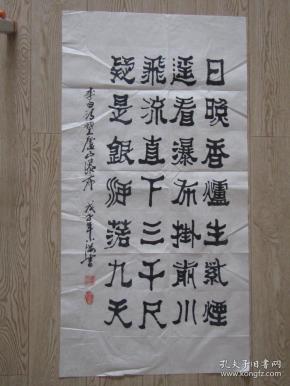 日照香爐生紫煙
遥看瀑布掛前川
飛流直下三千尺
疑是銀河落九天
李白詩望廬山瀑布 戊子年 書
孔夫子旧书网